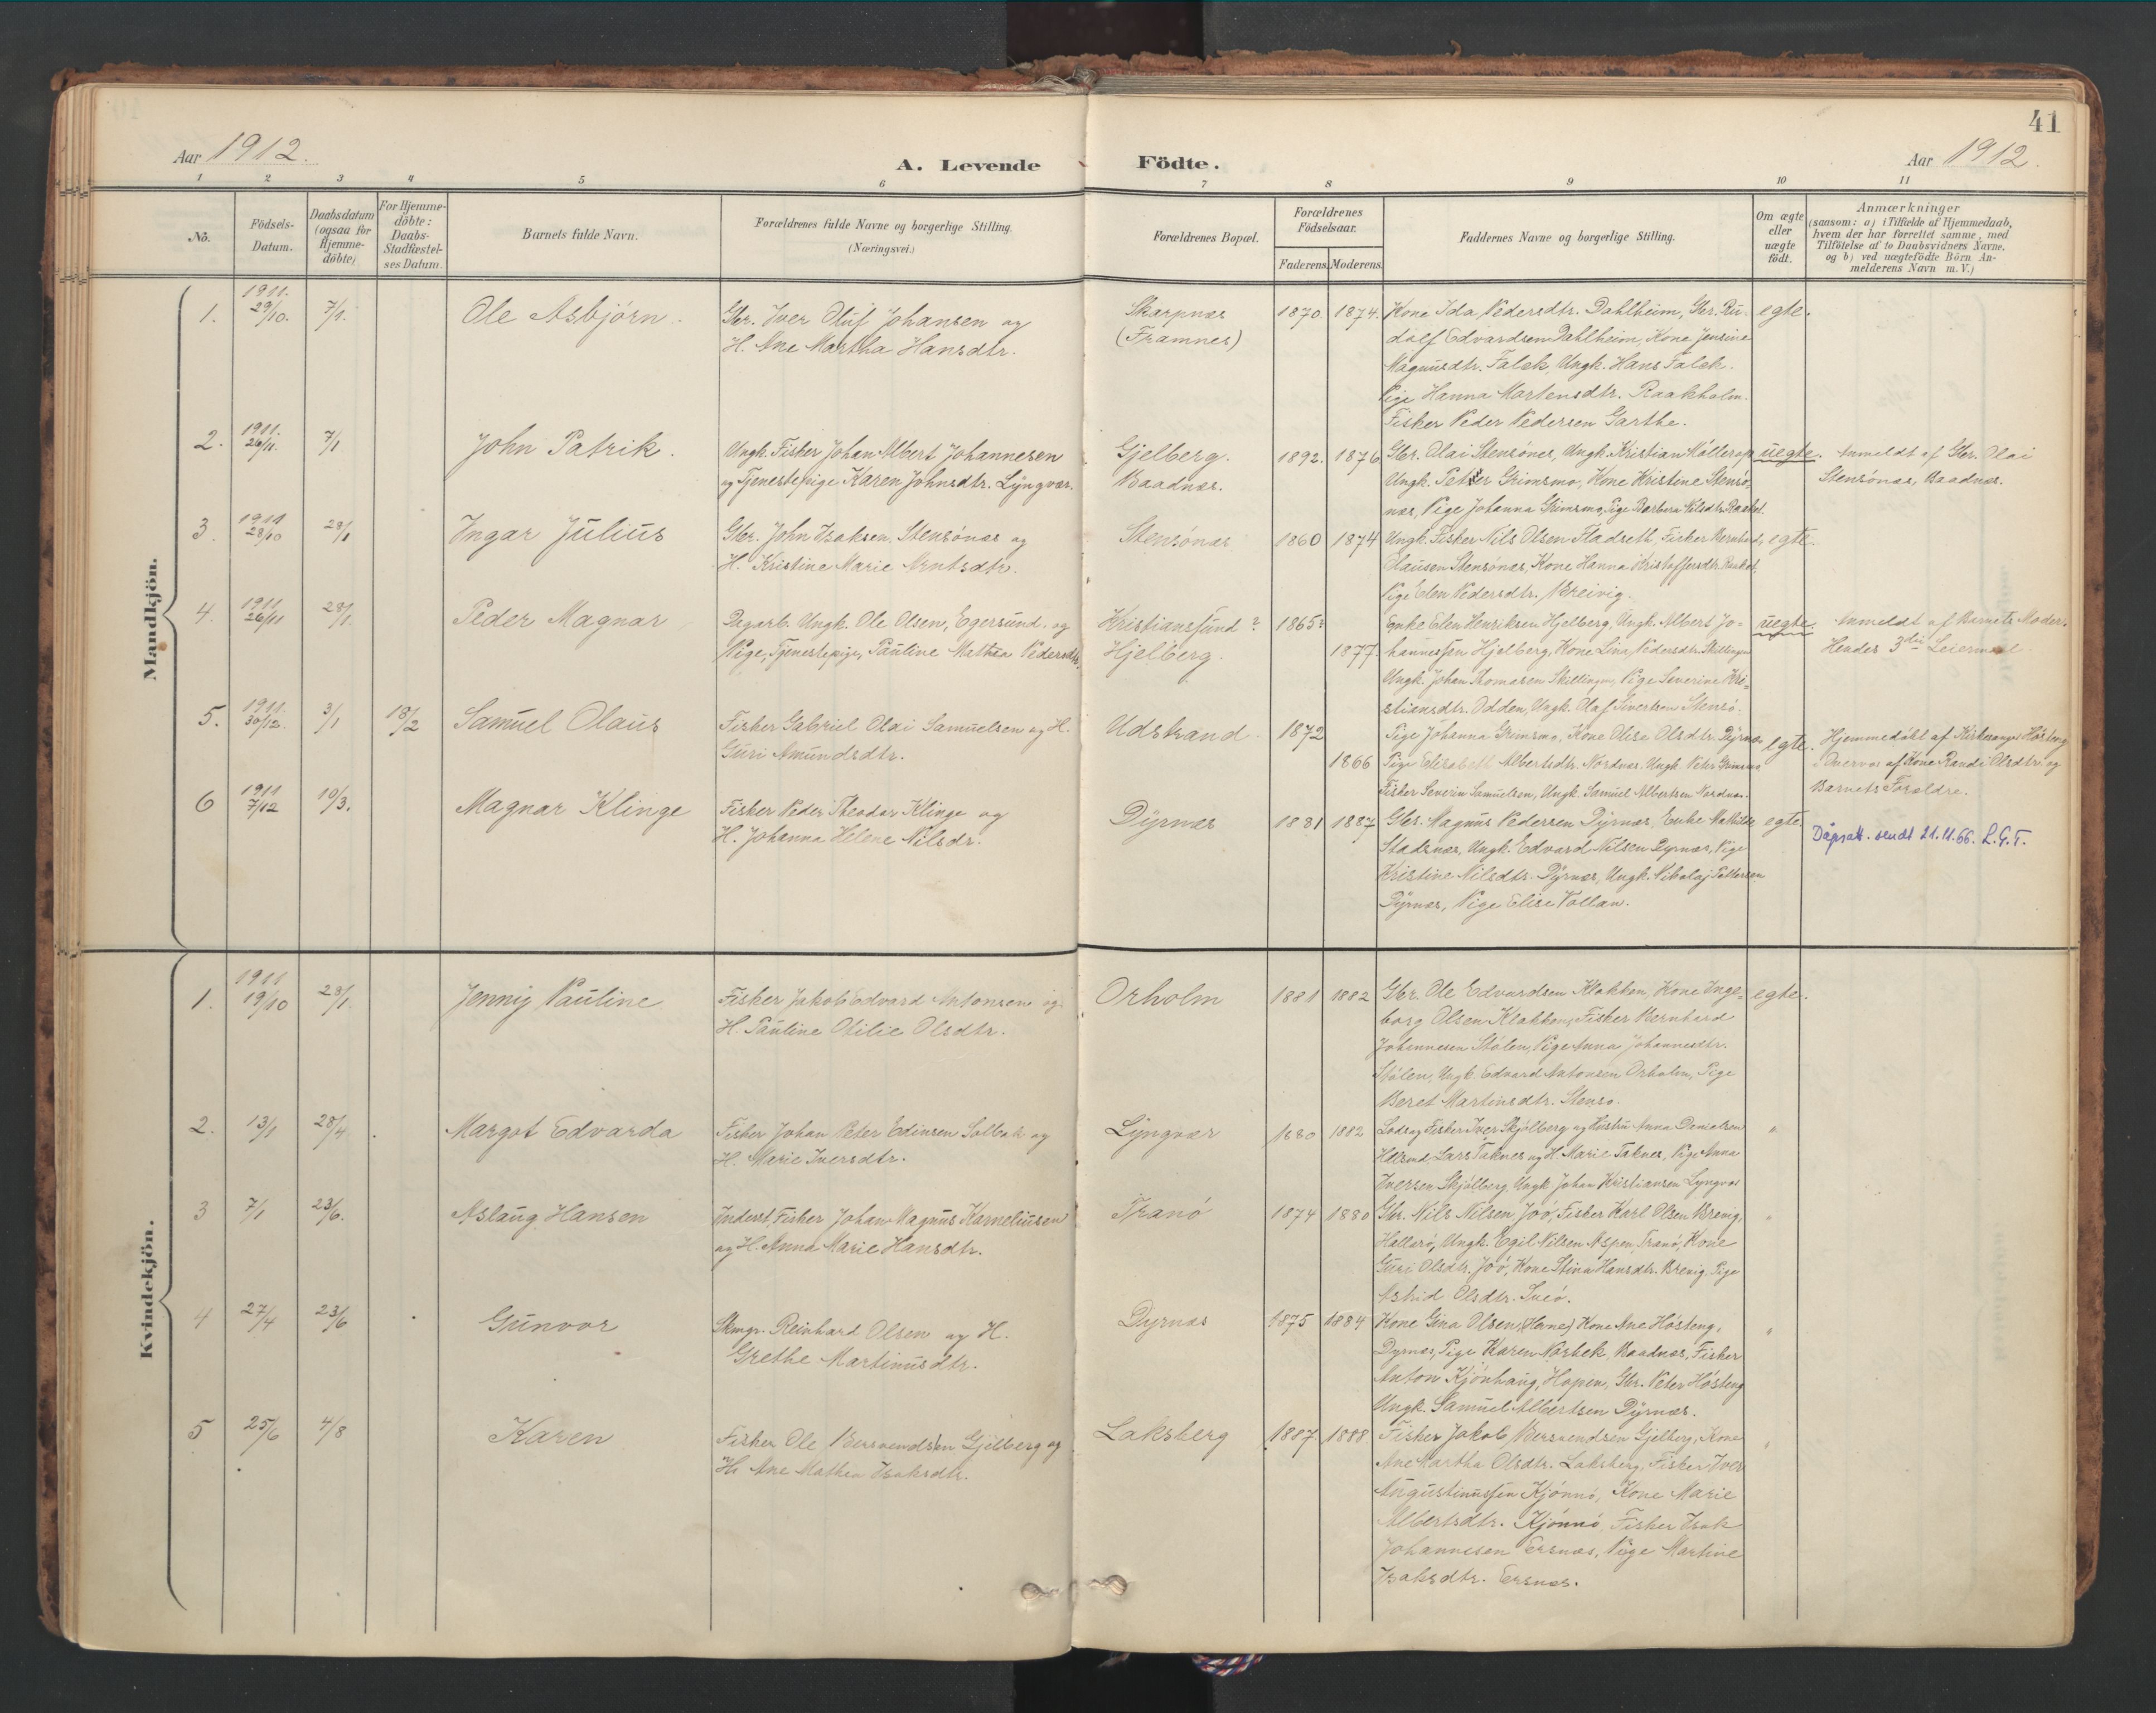 41
Aar 1912.
A. Levende Födte.
Aar 1912.
1 2 3 4 5 6 7 8 9 10 11
No.
Födsels-
Datum.
Daabsdatum
(ogsaa for
Hjemme-
döbte)
For Hjemme-
döbte:
Daabs-
Stadfæstel-
ses Datum.
Barnets fulde Navn.
Forældrenes fulde Navne og borgerlige Stilling.
(Næringsvei.)
Forældrenes Bopæl.
Forældrenes
Födselsaar.
Faderens. Moderens.
Faddernes Navne og borgerlige Stilling.
Om ægte
eller
uægte
födt.
Anmærkninger
(saasom: a) i Tilfælde af Hjemmedaab,
hvem der har forrettet samme, med
Tilföielse af to Daabsvidners Navne,
og b) ved uægtefödte Börn An-
melderens Navn m. V.)
Mandkjön.
1. 1911. 29/10. 7/1. Ole Asbjörn.
Gbr. Iver Oluf Johansen og
H. Ane Martha Hansdtr.
Skarpnes
(Framnes)
1870 1874.
Kone Ida Pedersdtr. Dahlheim, Gbr. Ru-
dolf Edvardsen Dahlheim, Kone Jensine
Magnusdtr. Falck, Ungk. Hans Falck.
Pige Hanna Martensdtr. Raakholm.
Fisker Peder Pedersen Garthe.
egte.
2. 1911. 26/11. 7/1 John Patrik.
Ungk. Fisker Johan Albert Johannesen
og Tjenestepige Karen Johnsdtr. Lyngvær.
Gjelberg.
Baadnes.
1892. 1876
Gbr. Olai Stensönes, Ungk. Kristian Möllerop
Ungk. Petter Grimsmo, Kone Kristine Stensö-
nes, Pige Johanna Grimsmo, Pige Barbara Nilsdtr. Raakol.
uegte.
Anmeldt af Gbr. Olai
Stensönes, Baadnes.
3. 1911 28/10 28/1 Ingar Julius
Gbr. John Isaksen Stensönes og
H. Kristine Marie Arntsdtr.
Stensönes
1860 1874
Ungk. Fisker Nils Olsen Fladseth, Fisker Bernhard
Olausen Stensönes, Kone Hanna Kristoffersdtr. Raakol,
Pige Elen Pedersdtr. Breivig.
egte.
4. 1911 26/11 28/1. Peder Magnar
Dagarb. Ungk. Ole Olsen, Egersund. og
Pige, Tjenestepige, Pauline Mathea Pedersdtr.
Kristianssund?
Hjelberg.
1865? 1877.
Enke Elen Henriksen Hjelberg, Ungk. Albert Jo-
hannessen Hjelberg, Kone Lina Pedersdtr. Skillingen
Ungk. Johan Thomasen Skillingen, Pige Severine Kri-
stiansdtr. Odden, Ungk. Olaf Sivertsen Stensö.
uegte.
Anmeldt af Barnets Moder.
Hendes 3die Leiermaal
5. 1911. 30/12. 3/1 18/2 Samuel Olaus
Fisker Gabriel Olai Samuelsen og H.
Guri Amundsdtr.
Udstrand.
1872 1866
Pige Johanna Grimsmo, Kone Olise Olsdtr. Dyrnes
Pige Elisabeth Albertsdtr. Nordnes. Ungk. Peter Grimsmo
Fisker Severin Samuelsen, Ungk. Samuel Albertsen Nordnes.
egte.
Hjemmedöbt af Kirkesanger Hösteng
Overvær af Kone Randi Olsdtr. og
Barnets Forældre.
6 1911 7/12 10/3. Magnar Klinge
Fisker Peder Theodor Klinge og
H. Johanna Helene Nilsdr.
Dyrnes
1881 1887
Gbr. Magnus Pedersen Dyrnes, Enke Mathilde
Stadsnes, Ungk. Edvard Nilsen Dyrnes, Pige
Kristine Nilsdtr. Dyrnes, Ungk. Nikolaj Pettersen
Dyrnes, Pige Elise Vollan.
egte
Dåpsatt. sendt 21.11.66. L.G.T.
Kvindekjön.
1. 1911 19/10 28/1. Jenny Pauline
Fisker Jakob Edvard Antonsen og
H. Pauline Otilie Olsdtr.
Orholm
1881 1882
Gbr. Ole Edvardsen Klakken, Kone Inge-
borg Olsen Klakken, Fisker Bernhard
Johannesen Stölen, Pige Anna Johannesdtr.
Stölen, Ungk. Edvard Antonsen Orholm, Pige
Beret Martinsdtr. Stensö.
egte.
2. 13/1 28/4 Margot Edvarda
Fisker Johan Peter Edinsen Solbak og
H. Marie Iversdtr.
Lyngvær
1880 1882
Lods og Fisker Iver Skjölberg og Hustru Anna Danielsen
Lars Taknes og H. Marie Taknes, Pige Anna
Iversen Skjölberg, Ungk. Johan Kristiansen Lyngvær
"
3 7/1 23/6. Aslaug Hansen
Inderst, Fisker Johan Magnus Karneliusen
og H. Anna Marie Hansdtr.
Tranö
1874 1880
Gbr. Nils Nilsen Joö, Fisker Karl Olsen Brevig,
Hallarö, Ungk. Egil Nilsen Aspen, Tranö, Kone
Guri Olsdtr. Joö, Kone Stina Hansdtr. Brevig. Pige
Astrid Olsdtr.
"
4 27/4 23/6 Gunvor
Skmgr. Reinhard Olsen og H.
Grethe Martinusdtr.
Dyrnes
1875 1884
Kone Gina Olsen, Kone Ane Hösteng,
Dyrnes, Pige Karen Norbek, Baadnes, Fisker
Anton Kjönhaug, Hopen, Gbr. Peter Hösteng
Ungk. Samuel Albertsen Dyrnes.
"
5 25/6 4/8 Karen
Fisker Ole Bersvendsen Gjelberg og
H. Ane Mathea Isaksdtr.
Laksberg
1887 1888
Fisker Jakob Bersvendsen Gjelberg, Kone
Ane Martha Olsdtr. Laksberg, Fisker Iver
Augustinussen Kjönnö, Kone Marie
Albertsdtr. Kjönnö, Fisker Isak
Johannesen Ersnes, Pige Martine
Isaksdtr. Ersnes.